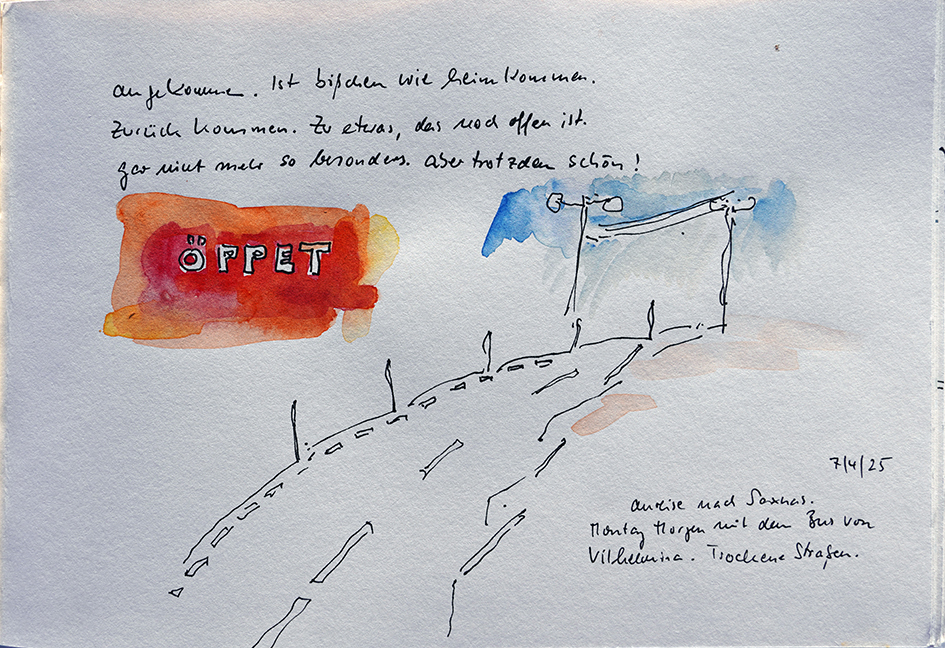 angekommen. Ist bißchen wie heimkommen.
Zurück kommen. Zu etwas, das noch offen ist.
gar nicht mehr so besonders. aber trotzdem schön!
ÖPPET
7/4/25
anreise nach Saxnas.
Montag Morgen mit dem Bus von
Vilhelmina. Trockene Straßen.